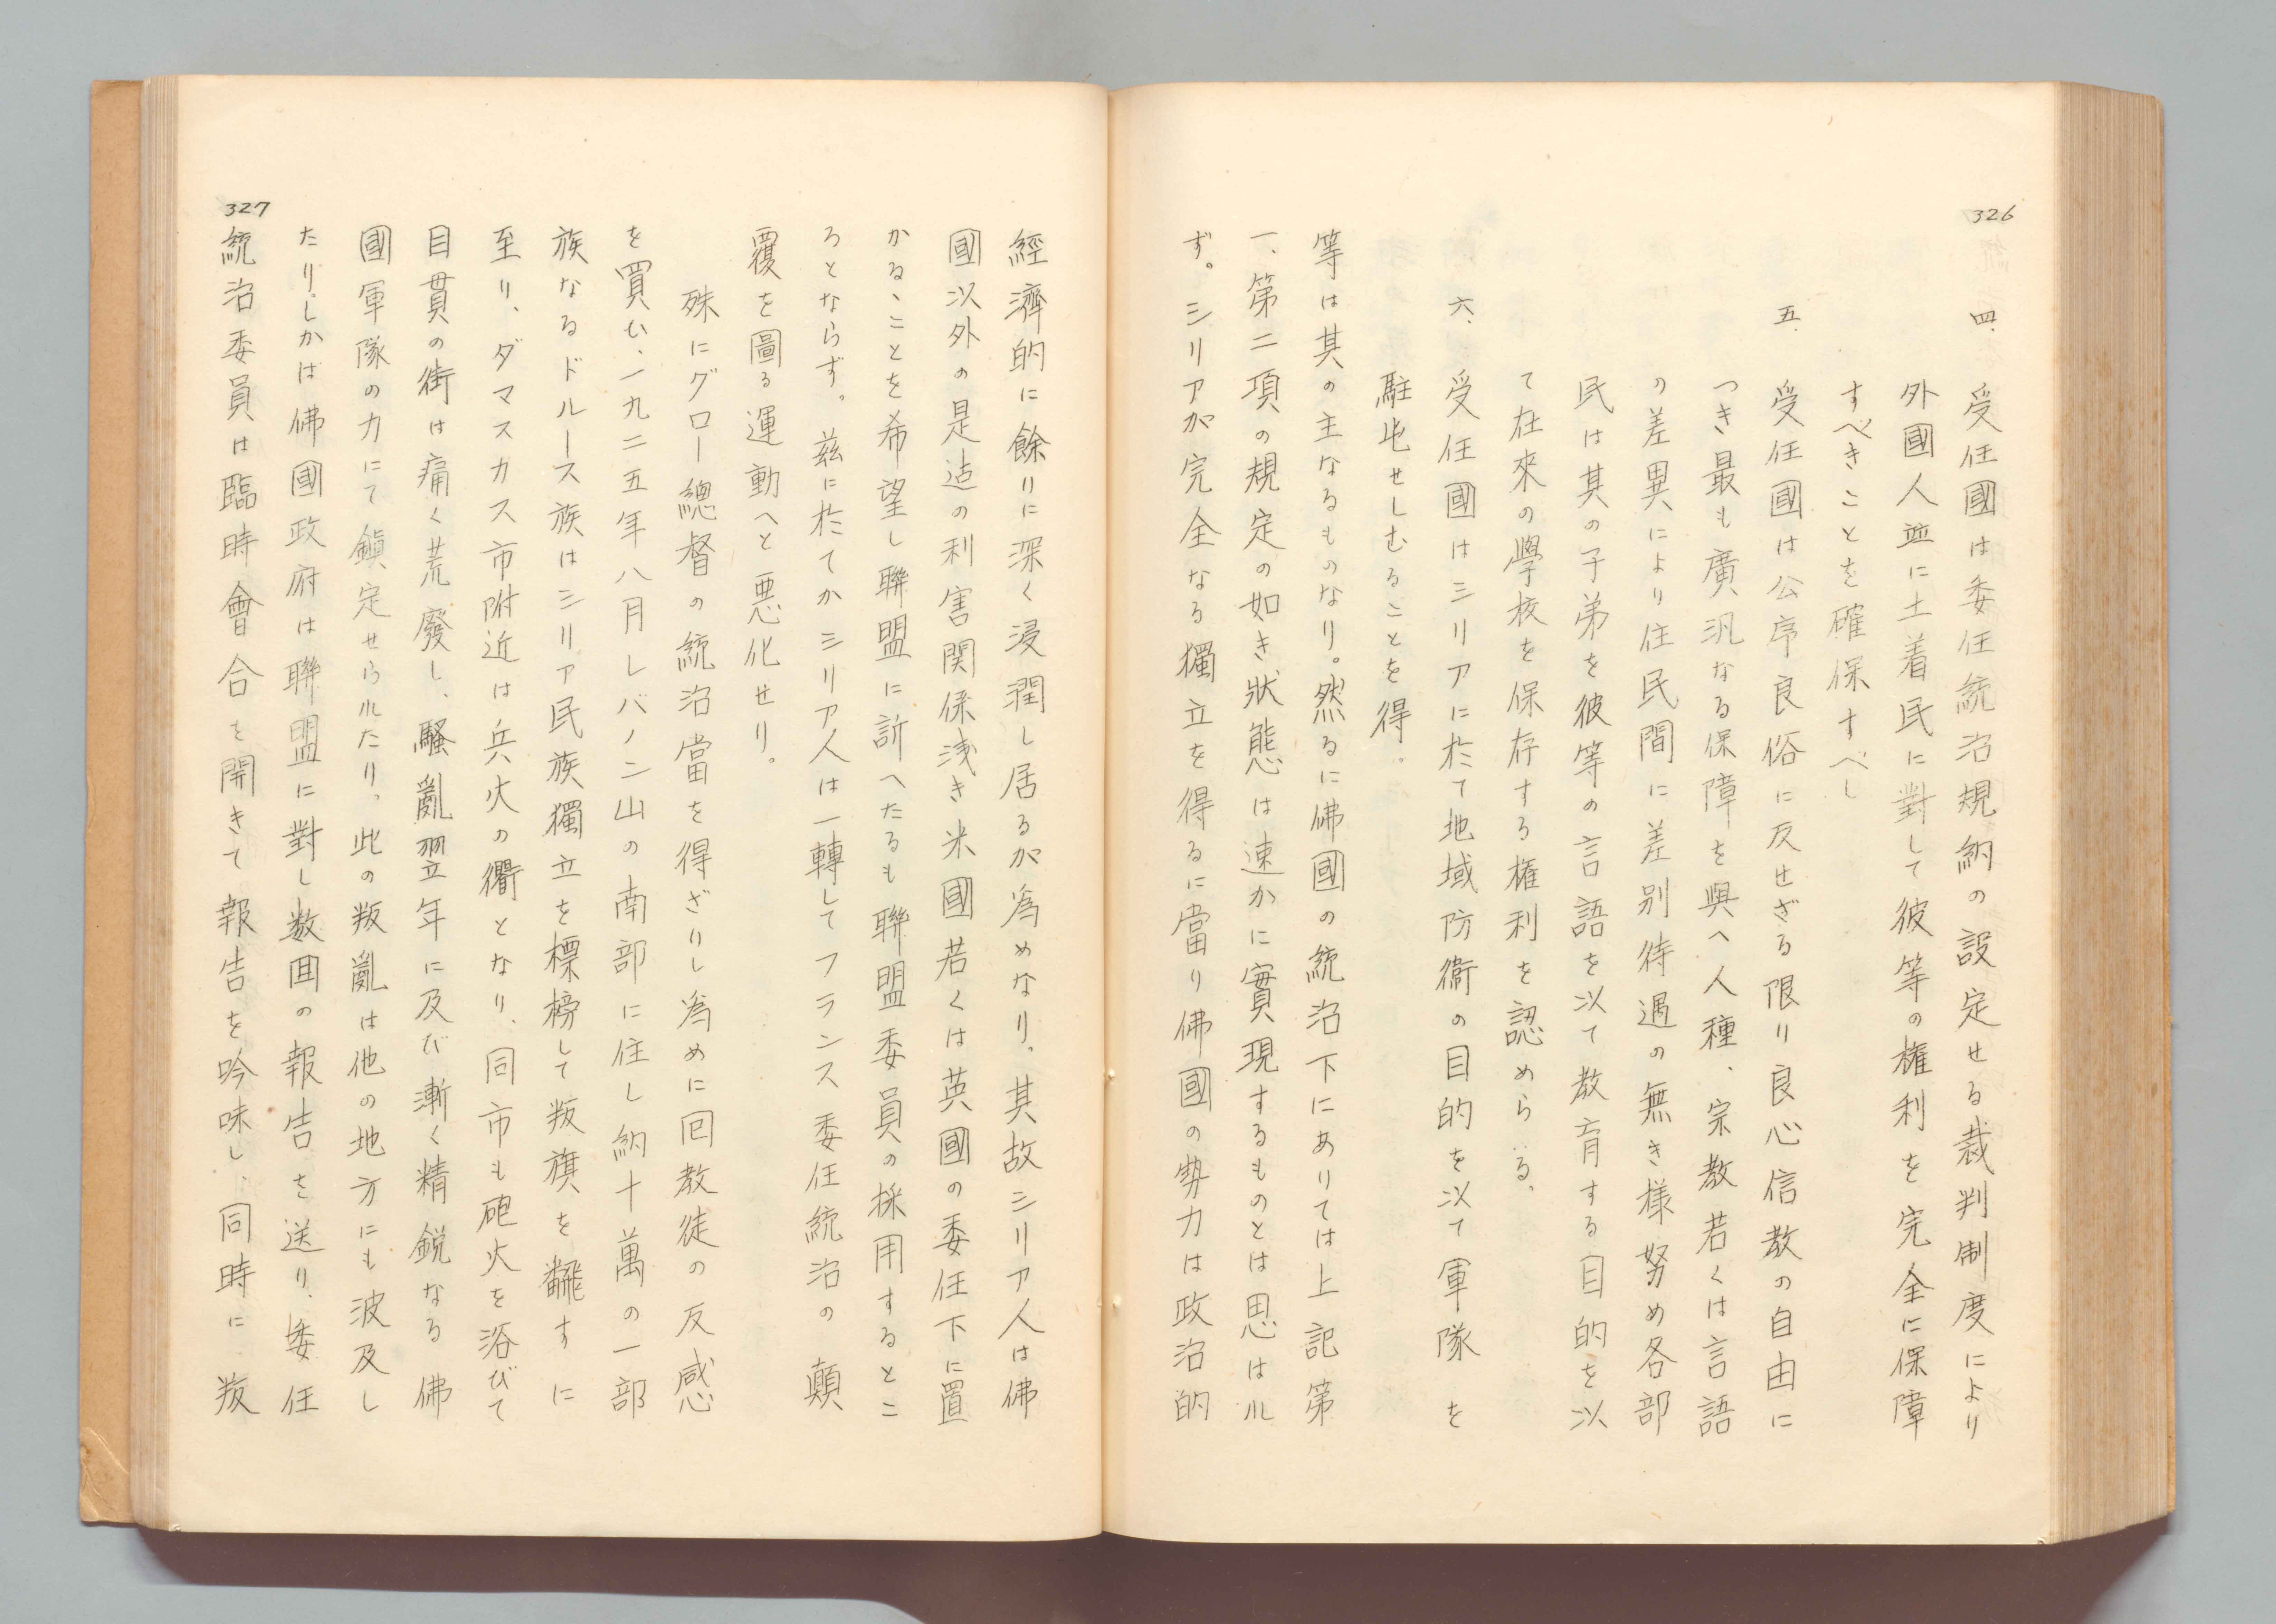 326
四、受任國は委任統治規約の設定せる裁判制度により
外國人並に土着民に對して彼等の権利を完全に保障
すべきことを確保すべし
五、受任國は公序良俗に反せざる限り良心信教の自由に
つき最も廣汎なる保障を與へ人種、宗教若くは言語
の差異により住民間に差別待遇の無き様努め各部
民は其の子弟を彼等の言語を以て教育する目的を以
て在來の學校を保存する権利を認めらる。
六、受任國はシリアに於て地域防衞の目的を以て軍隊を
駐屯せしむることを得。
等は其の主なるものなり。然るに佛國の統治下にありては上記第
一、第二項の規定の如き狀態は速かに實現するものとは思はれ
ず。シリアが完全なる獨立を得るに當り佛國の勢力は政治的
327
經濟的に餘りに深く浸潤し居るが為めなり。其故シリア人は佛
國以外の是迠の利害関係浅き米國若くは英國の委任下に置
かるゝことを希望し聯盟に訴へたるも聯盟委員の採用するとこ
ろとならず。茲に於てかシリア人は一轉してフランス委任統治の顛
覆を圖る運動へと悪化せり。
殊にグロー總督の統治當を得ざりし為めに回教徒の反感
を買ひ、一九二五年八月レバノン山の南部に住し約十萬の一部
族なるドルース族はシリア民族獨立を標榜して叛旗を飜すに
至り、ダマスカス市附近は兵火の衢となり、同市も砲火を浴びて
目貫の街は痛く荒廢し、騷亂翌年に及び漸く精鋭なる佛
國軍隊の力にて鎭定せられたり。此の叛亂は他の地方にも波及し
たりしかは佛國政府は聯盟に對し数囬の報告を送り、委任
統治委員は臨時會合を開きて報告を吟味し、同時に叛